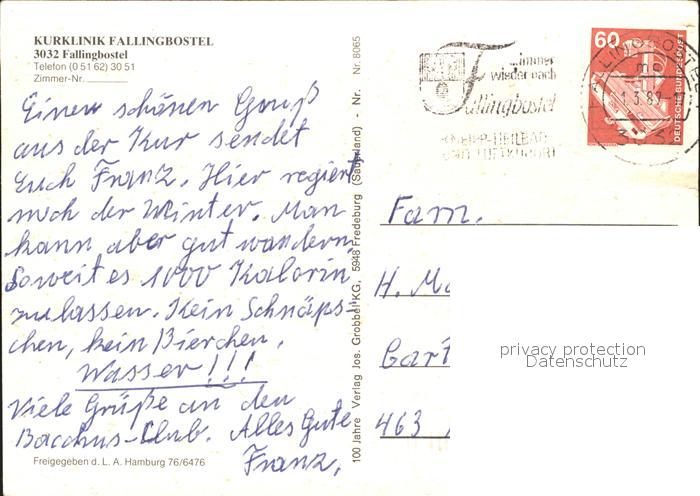 KURKLINIK FALLINGBOSTEL
3032 Fallingbostel
Telefon (0 51 62) 30 51
Zimmer-Nr.
Einen schönen Gruß
aus der Kur sendet
Euch Franz. Hier regiert
noch der Winter. Man
kann aber gut wandern
Soweit es 1000 Kalorin
zulassen. Kein Schnäps-
chen, kein Bierchen,
Wasser!!!
Viele Grüße an den
Bacchus-Club. Alles Gute
Franz.
Freigegeben d. L. A. Hamburg 76/6476
100 Jahre Verlag Jos. Grobbel KG, 5948 Fredeburg (Sauerland) - Nr. Nr. 8065
...immer
wieder nach
Fallingbostel
KNEIPP-HEILBAD
UND LUFTKURORT
60
DEUTSCHE BUNDESPOST
Fam.
H. Mo
Gart
463
privacy protection
Datenschutz